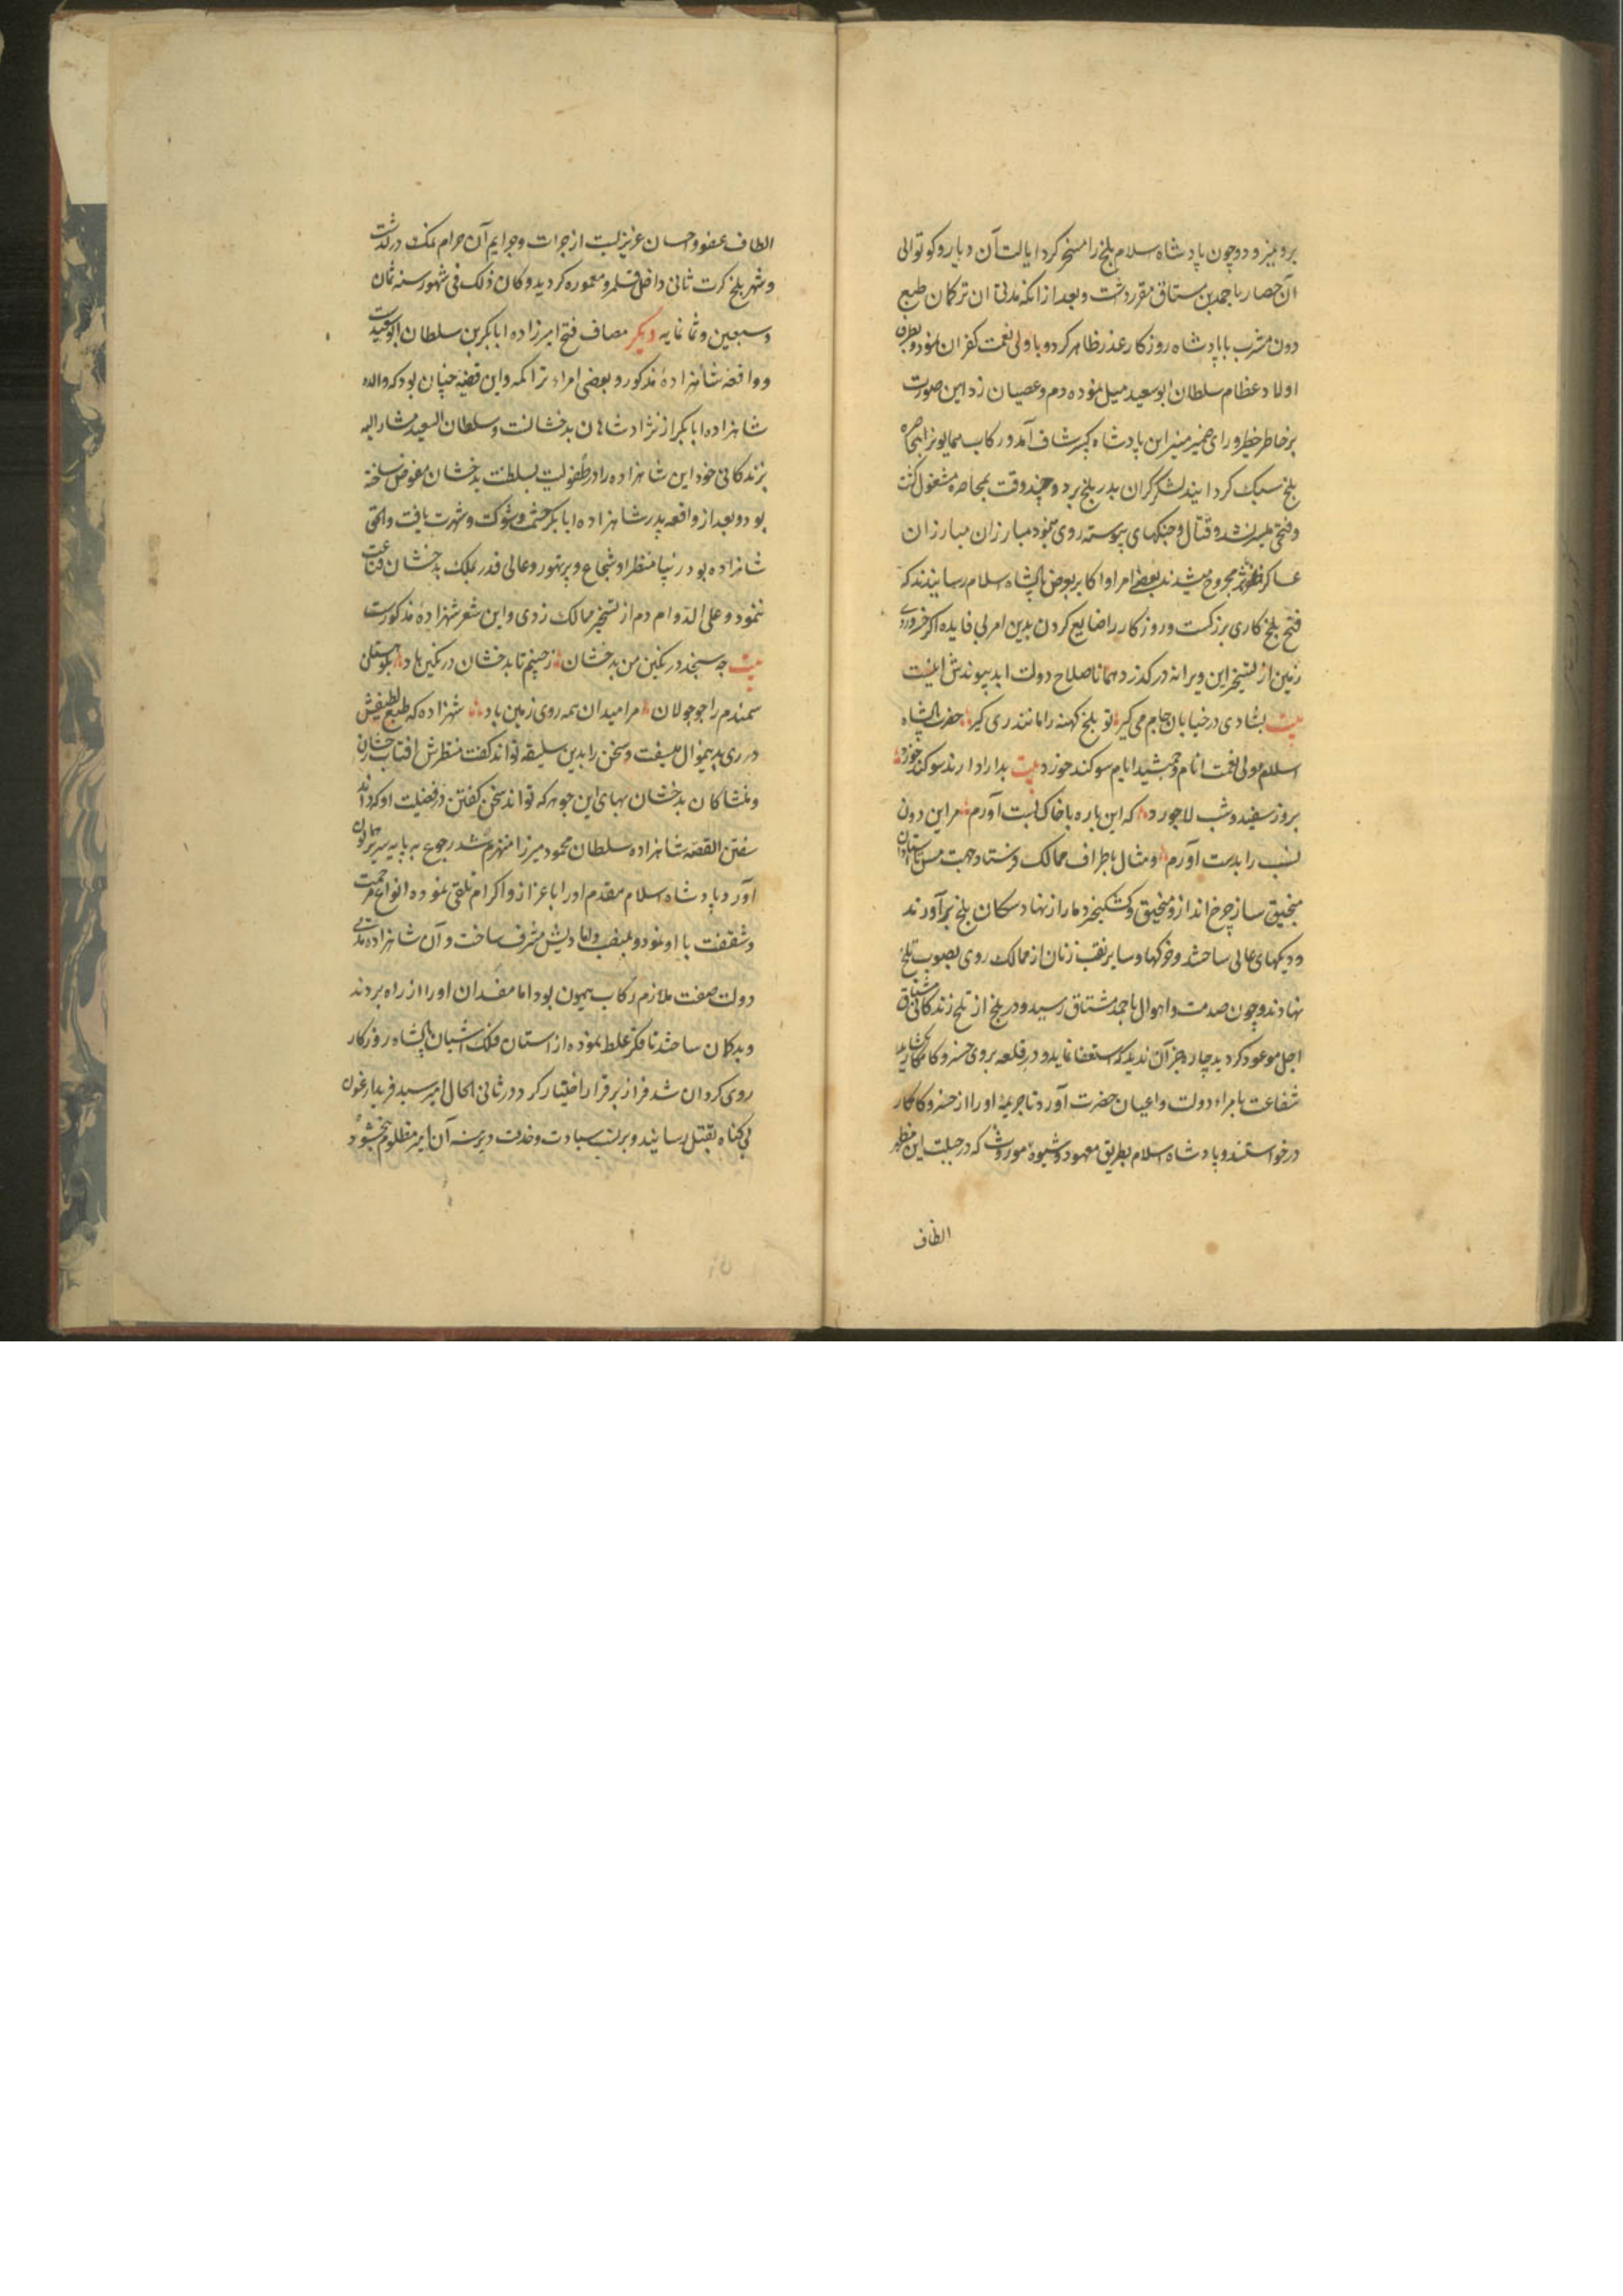 برو میرود و چون پادشاه اسلام بلخ را مسخر کرد ایالت آن دیار و کوتوالی
آن حصار باحمد بن مستاق مقرر داشت و بعد از انکه مدتی ان ترکمان طبع
دون مشرب با پادشاه روزکار عذر ظاهر کرد و با ولی نعمت کفران نمود و بطرف
اولاد عظام سلطان ابوسعید میل نموده دم وعصیان زد این صورت
بر خاطر خطیر و رای ضمیر منیر این پادشاه کبیر شاق آمد و رکاب همایون را بمحاصره
بلخ سبک کردانید لشکر کران بدر بلخ برد و چند وقت بمحاصره مشغول کشت
و فتحی میسر نشد و قتال و جنکهای پیوسته روی نمود مبارزان مبارزان
عساکر ظفر مجروح میشدند بعضی امرا و اکابر بعرض پادشاه اسلام رسانیدند که
فتح بلخ کاری بزرکست و روزکار را ضایع کردن بدین امر بی فایده اکر خسرو روی
زمین از تسخیر این ویرانه درکذرد همانا صلاح دولت ابد پیوندش اینست
بیت بشادی در خیابان جام می کیر تو بلخ کهنه را مانند ری کیر حضرت پادشاه
اسلام مولی النعمت انام و جمشید ایام سوکند خورد بیت بدارا دارند سوکند خورد
بروز سفید و شب لاجورد که این باره با خاک پست آورم مر این دون
نسب را بدست آورم و مثال باطراف ممالک فرستاد و جهت مس استادان
منجنیق ساز چرخ انداز و منجنیق و کشکنجیر دمار از نهاد سکان بلخ برآورند
و دیکهای عالی ساختند و خرکها و سایر نقب زنان از ممالک روی بصوب بلخ
نهادند و چون صدمت و اهوال باحمد مشتاق رسید و در بلخ از تلخ زندکانی مشتاق
اجل موعود کردید چاره جز آن ندید که استعفا نماید و در قلعه بروی خسرو کامکار بکشاید
شفاعت بامراء دولت و اعیان حضرت آورد تا جریمه او را از خسرو کامکار
درخواستند و پادشاه اسلام بطریق معهود و شیوه موروث که در جبلت این مظهر
الطاف
الطاف عفو و احسان عزیزیست از جرات و جرایم آن حرام نمک درکذشت
و شهر بلخ کرت ثانی داخل قلمرو معموره کردید و کان ذلک فی شهور سنه ثمان
و سبعین و ثمانمایه دیکر مصاف فتح امیرزاده ابابکر بن سلطان ابوسعیدست
و واقعه شاهزاده مذکور و بعضی امراء تراکمه و این قضیه چنان بود که والده
شاهزاده ابابکر از نژاد شاهان بدخشانست و سلطان السعید مشار الیه
بزندکانی خود این شاهزاده را در طفولیت بسلطنت بدخشان مفوض ساخته
بود و بعد از واقعه پدر شاهزاده ابابکر حشمت و شوکت و شهرت یافت و الحق
شاهزاده بود زیبا منظر و شجاع و پر تهور و عالی قدر بملک بدخشان قناعت
ننمود و علی الدوام دم از تسخیر ممالک زدی و این شعر شهزاده مذکورست
بیت چه سنجد در نکین من بدخشان ز چینم تا بدخشان در نکین باد بکوهستان
سمندم را چو جولان مرا میدان همه روی زمین باد شهزاده که طبع لطیفش
در ری بدین منوال میسفت و سخن را بدین سلیقه تواند کفت منظرش افتاب رخشان
و منشا کان بدخشان بهای این جوهر که تواند سخن کفتن در فضیلت او که داند
سفتن القصه شاهزاده سلطان محمود میرزا منهزم شد رجوع به پایه سریر همایون
آورد پادشاه اسلام مقدم او را باعزاز و اکرام تلقی نموده انواع مرحمت
و شفقت با او نمود و بمنصب دامادیش مشرف ساخت و آن شاهزاده مدتی
دولت صفت ملازم رکاب همیون بود اما مفسدان او را از راه بردند
و بدکان ساختند تا فکر غلط نموده از استان فلک اشیان پادشاه روزکار
روی کردان شد فرار بر قرار اختیار کرد و در ثانی الحال امیر سید فرید ارغون
بی کناه بقتل رسانید و بر نسب سیادت و خدمت دیرینه آن امیر مظلوم نبخشود